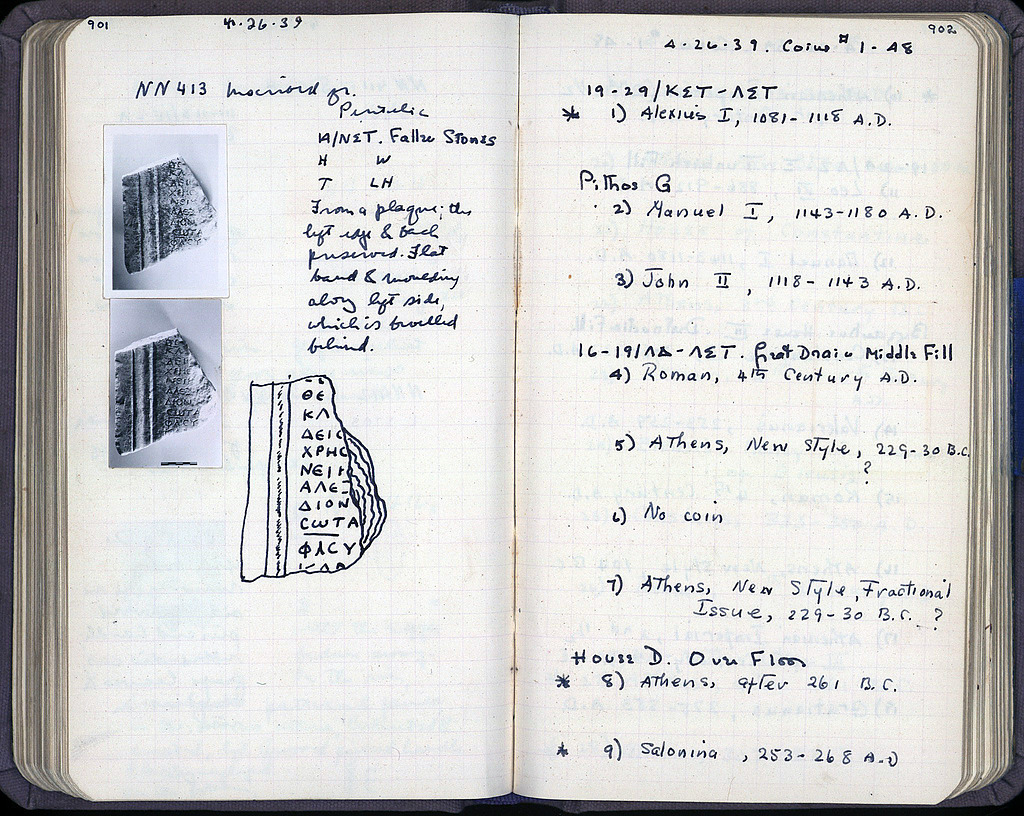 901
4-26-39
NN 413 Inscribed fr.
Pentelic
14/ΝΣΤ. Fallen Stones
H W
T LH
From a plaque; the
left edge & back
preserved. Flat
band & moulding
along left side,
which is bevelled
behind.
ΘΕ
ΚΛ
ΔΕΙϹ
ΧΡΗϹ
ΝΕΙΚ
ΑΛΕΞ
ΔΙΟΝ
ϹΩΤΑ
ΦΛϹΥ
902
4-26-39. Coins #1-48
19-29/ΚΣΤ-ΛΣΤ
* 1) Alexius I, 1081-1118 A.D.
Pithos G
2) Manuel I, 1143-1180 A.D.
3) John II, 1118-1143 A.D.
16-19/ΛΔ-ΛΣΤ. Great Drain Middle Fill
4) Roman, 4th Century A.D.
5) Athens, New Style, 229-30 B.C.
?
6) No coin
7) Athens, New Style, Fractional
Issue, 229-30 B.C. ?
House D. Over Floor
* 8) Athens, after 261 B.C.
* 9) Salonina, 253-268 A.D